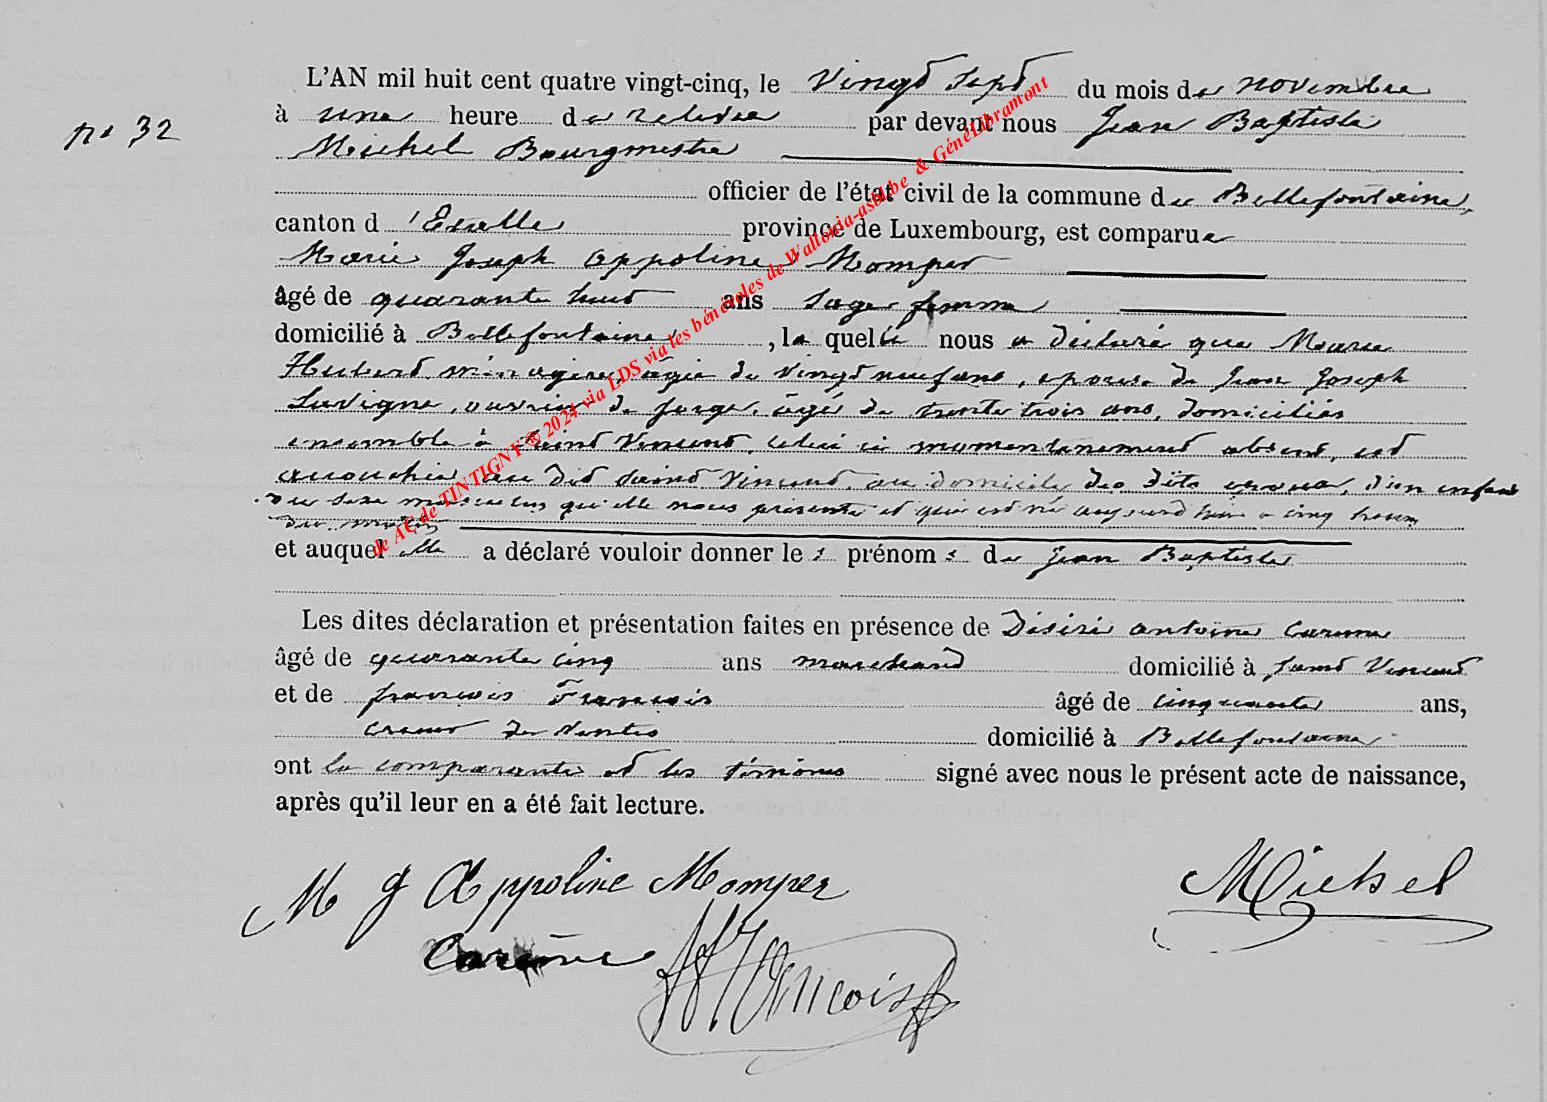 L'AN mil huit cent quatre vingt-cinq, le vingt sept du mois de novembre
n° 32
à une heure de relevée par devant nous Jean Baptiste
Michel Bourgmestre
officier de l'état civil de la commune de Bellefontaine,
canton d'Etalle province de Luxembourg, est comparue
Marie Joseph Appoline Momper
âgé de quarante huit ans sage femme
domicilié à Bellefontaine, laquelle nous a déclaré que Marie
Hubert ménagère, âgée de vingt neuf ans, épouse de Jean Joseph
Lavigne, ouvrier de forge, âgé de trente trois ans, domiciliés
ensemble à Saint Vincent, celui ci momentanément absent, est
accouchée au dit Saint Vincent, au domicile des dits époux, d'un enfant
du sexe masculin qu'elle nous présente et qui est né aujourd'hui à cinq heures
du matin
et auquel elle a déclaré vouloir donner les prénoms de Jean Baptiste
Les dites déclaration et présentation faites en présence de Désiré Antoine Carême
âgé de quarante cinq ans marchand domicilié à Saint Vincent
et de François François âgé de cinquante ans,
domicilié à Bellefontaine
ont la comparante et les témoins signé avec nous le présent acte de naissance,
après qu'il leur en a été fait lecture.
M J Appoline Momper
Michel
Carême
François
de AC de TINTIGNY ® 2024 via LDS via les bénévoles de Wallonia-asbl.be & GénéLibramont